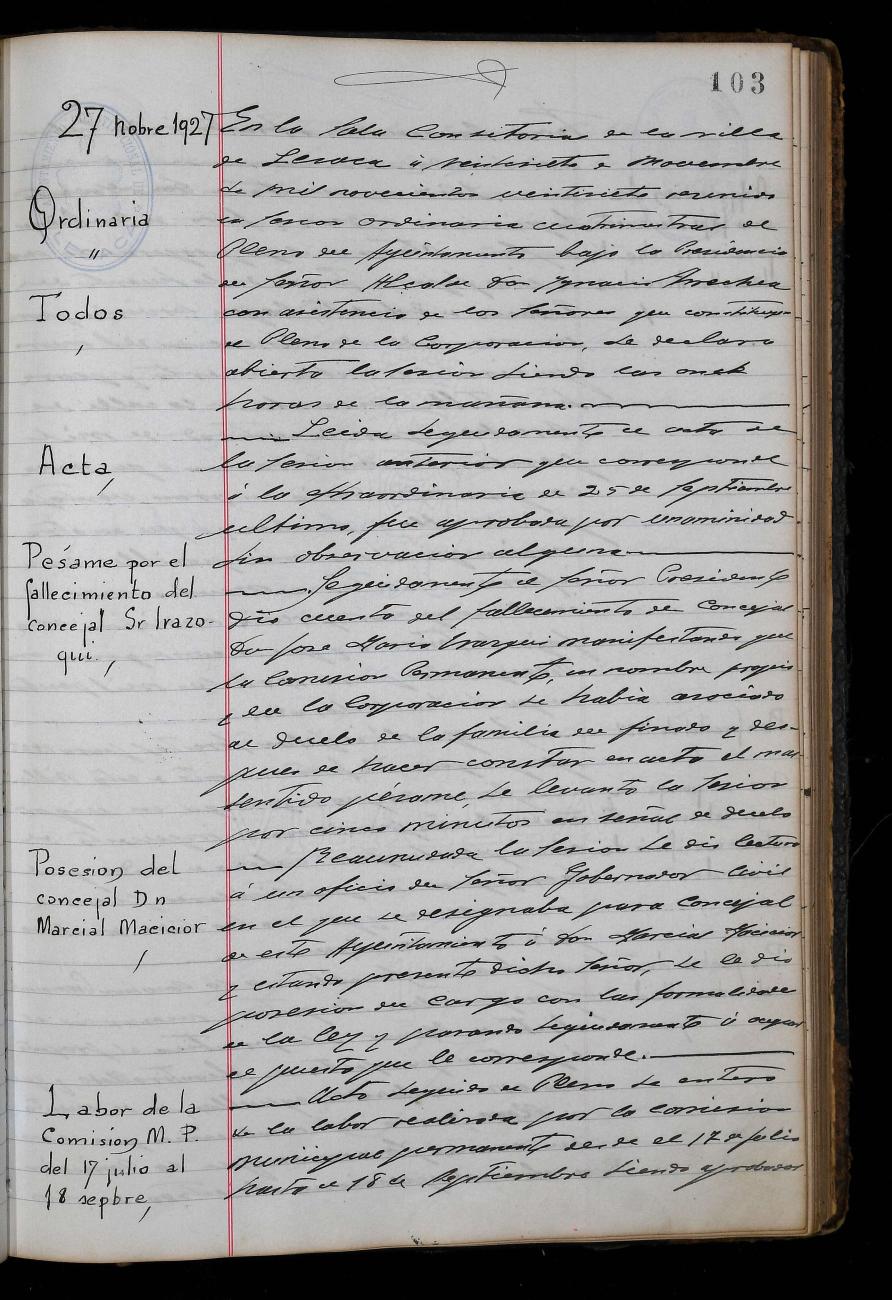 103
27 Nobre 1927
Ordinaria
"
Todos
Acta,
Pésame por el
fallecimiento del
concejal Sr Irazo-
qui.,
Posesion del
concejal Dn
Marcial Maeicior
Labor de la
Comision M. P.
del 17 julio al
18 sepbre,
En la Sala Consitoria de la villa
de Lesaca á veintisiete de Noviembre
de mil novecientos veintisiete reunido
en sesion ordinaria cuatrimestral el
Pleno del Ayuntamiento bajo la Presidencia
del Señor Alcalde Don Ygnacio Arrechea
con asistencia de los Señores que constituyen
el Pleno de la Corporacion, se declara
abierta la sesion siendo las once
horas de la mañana.
Leida seguidamente el acta de
la sesion anterior que corresponde
á la extraordinaria de 25 de Septiembre
ultimo, fue aprobada por unanimidad
sin observacion alguna.
Seguidamente el Señor Presidente
dio cuenta del fallecimiento del Concejal
Don Jose Maria Irazoqui manifestando que
la Comision Permanente, en nombre propio
y de la Corporacion se habia asociado
al duelo de la familia del finado y des-
pues de hacer constar en acta el mas
sentido pésame, se levanto la sesion
por cinco minutos en señal de duelo
Reanudada la sesion se dio lectura
á un oficio del Señor Gobernador Civil
en el que se designaba para Concejal
de este Ayuntamiento á Don Marcial Maeicior
y estando presente dicho Señor, se le dio
posesion del cargo con las formalidades
de la ley y pasando seguidamente á ocupar
el puesto que le corresponde.
Acto seguido el Pleno se entero
de la labor realizada por la comision
municipal permanente desde el 17 de Julio
hasta el 18 de Septiembre siendo aprobados